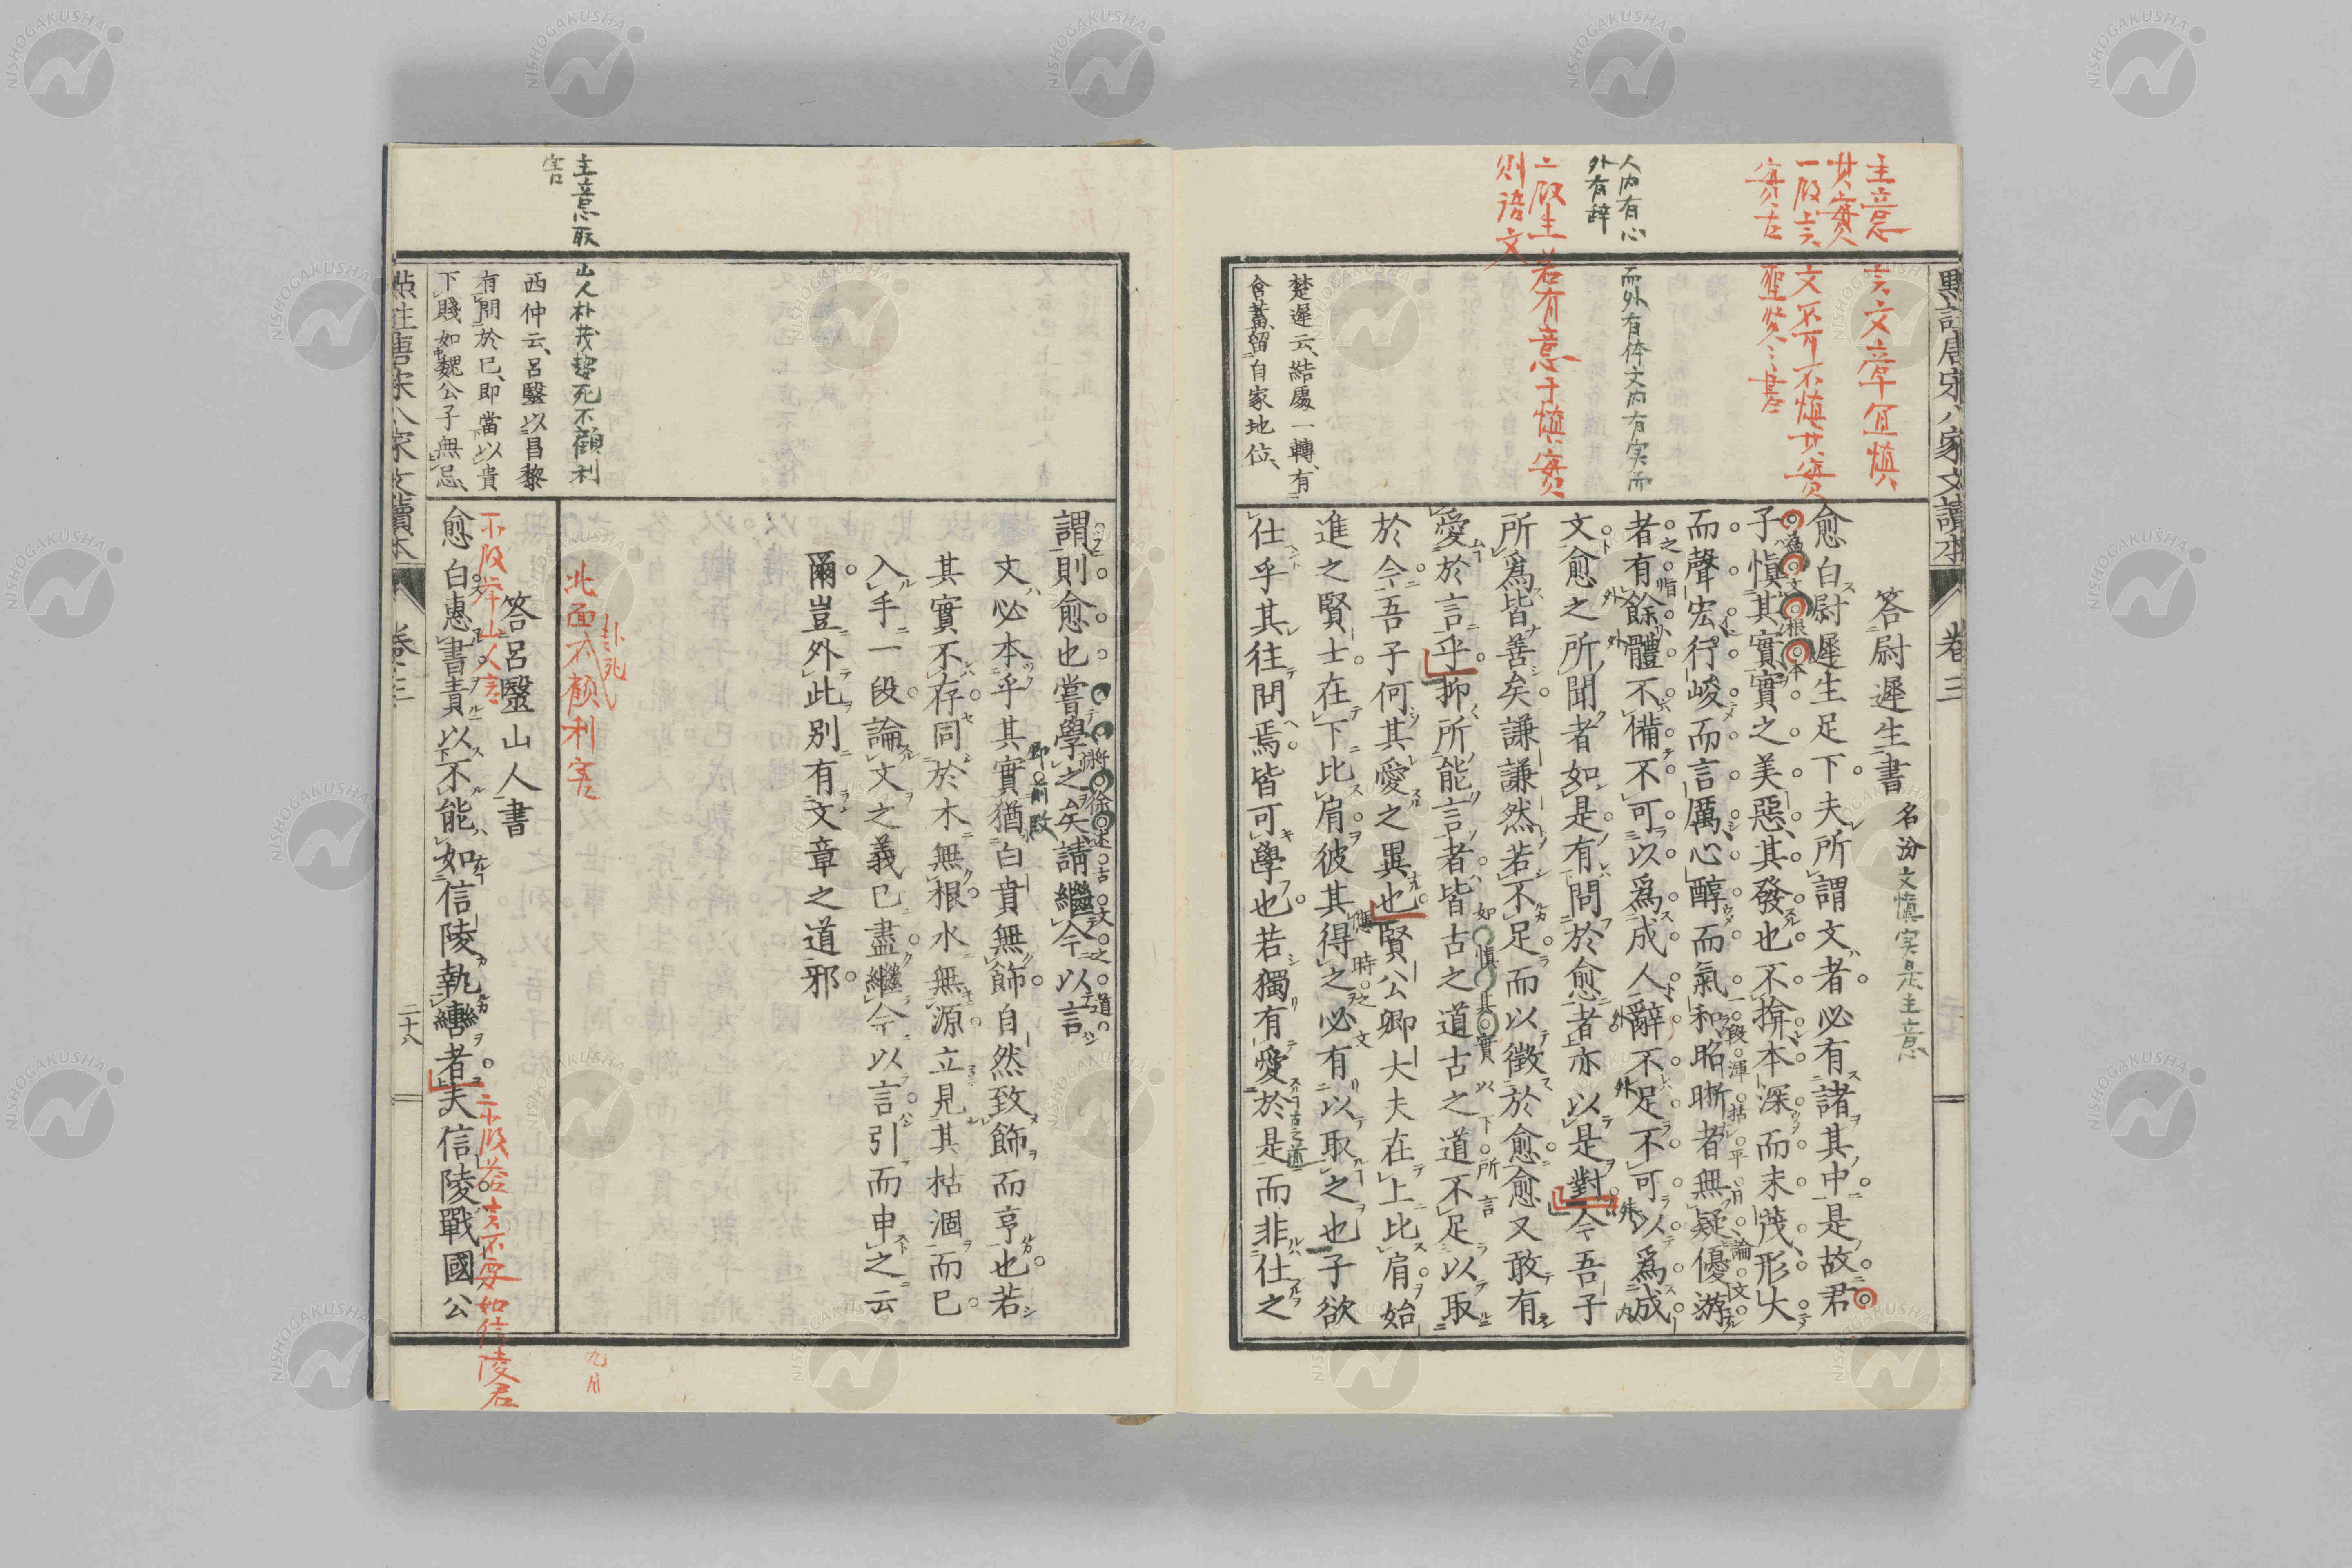 點註唐宋八家文讀本 卷三
主意
其實
言文章宜慎
一段言
文不可不慎其實
人内有心
外有辞
而外有体文内有実而
二段生若有意于慎實
則語文
楚遲云、結處一轉、有
含蓄、留自家地位、
答尉遲生書 名汾 文慎実是主意
愈白尉遲生足下夫所謂文者必有諸其中是故君
為文根本
子慎其實實之美惡其發也不揜本深而末茂形大
而聲宏行峻而言厲心醇而氣和昭晰者無疑優游
一段渾括平日論文
者有餘體不備不可以爲成人辭不足不可以爲成
文愈之所聞者如是有問於愈者亦以是對今吾子
所爲皆善矣謙謙然若不足而以徵於愈愈又敢有
愛於言乎抑所能言者皆古之道古之道不足以取
如慎其實以下所言
於今吾子何其愛之異也賢公卿大夫在上比肩始
進之賢士在下比肩彼其得之必有以取之也子欲
應時之文
仕乎其往問焉皆可學也若獨有愛於是而非仕之
古之道
謂則愈也嘗學之矣請繼今以言
將徐述古文之道
文必本乎其實猶白賁無飾自然致飾而亨也若
即前段
其實不存同於木無根水無源立見其枯涸而已
入手一段論文之義已盡繼今以言引而申之云
爾豈外此別有文章之道邪
主意取
害
山人朴茂趍死不顧利
西仲云、呂毉以昌黎
有問於已、即當以貴
下賤如魏公子無忌、
朴死
北面不顧利害
答呂毉山人書
一小段卒山人言
愈白惠書責以不能如信陵執轡者夫信陵戰國公
二小段答言不安如信陵君
九月
點註唐宋八家文讀本 卷三 二十八